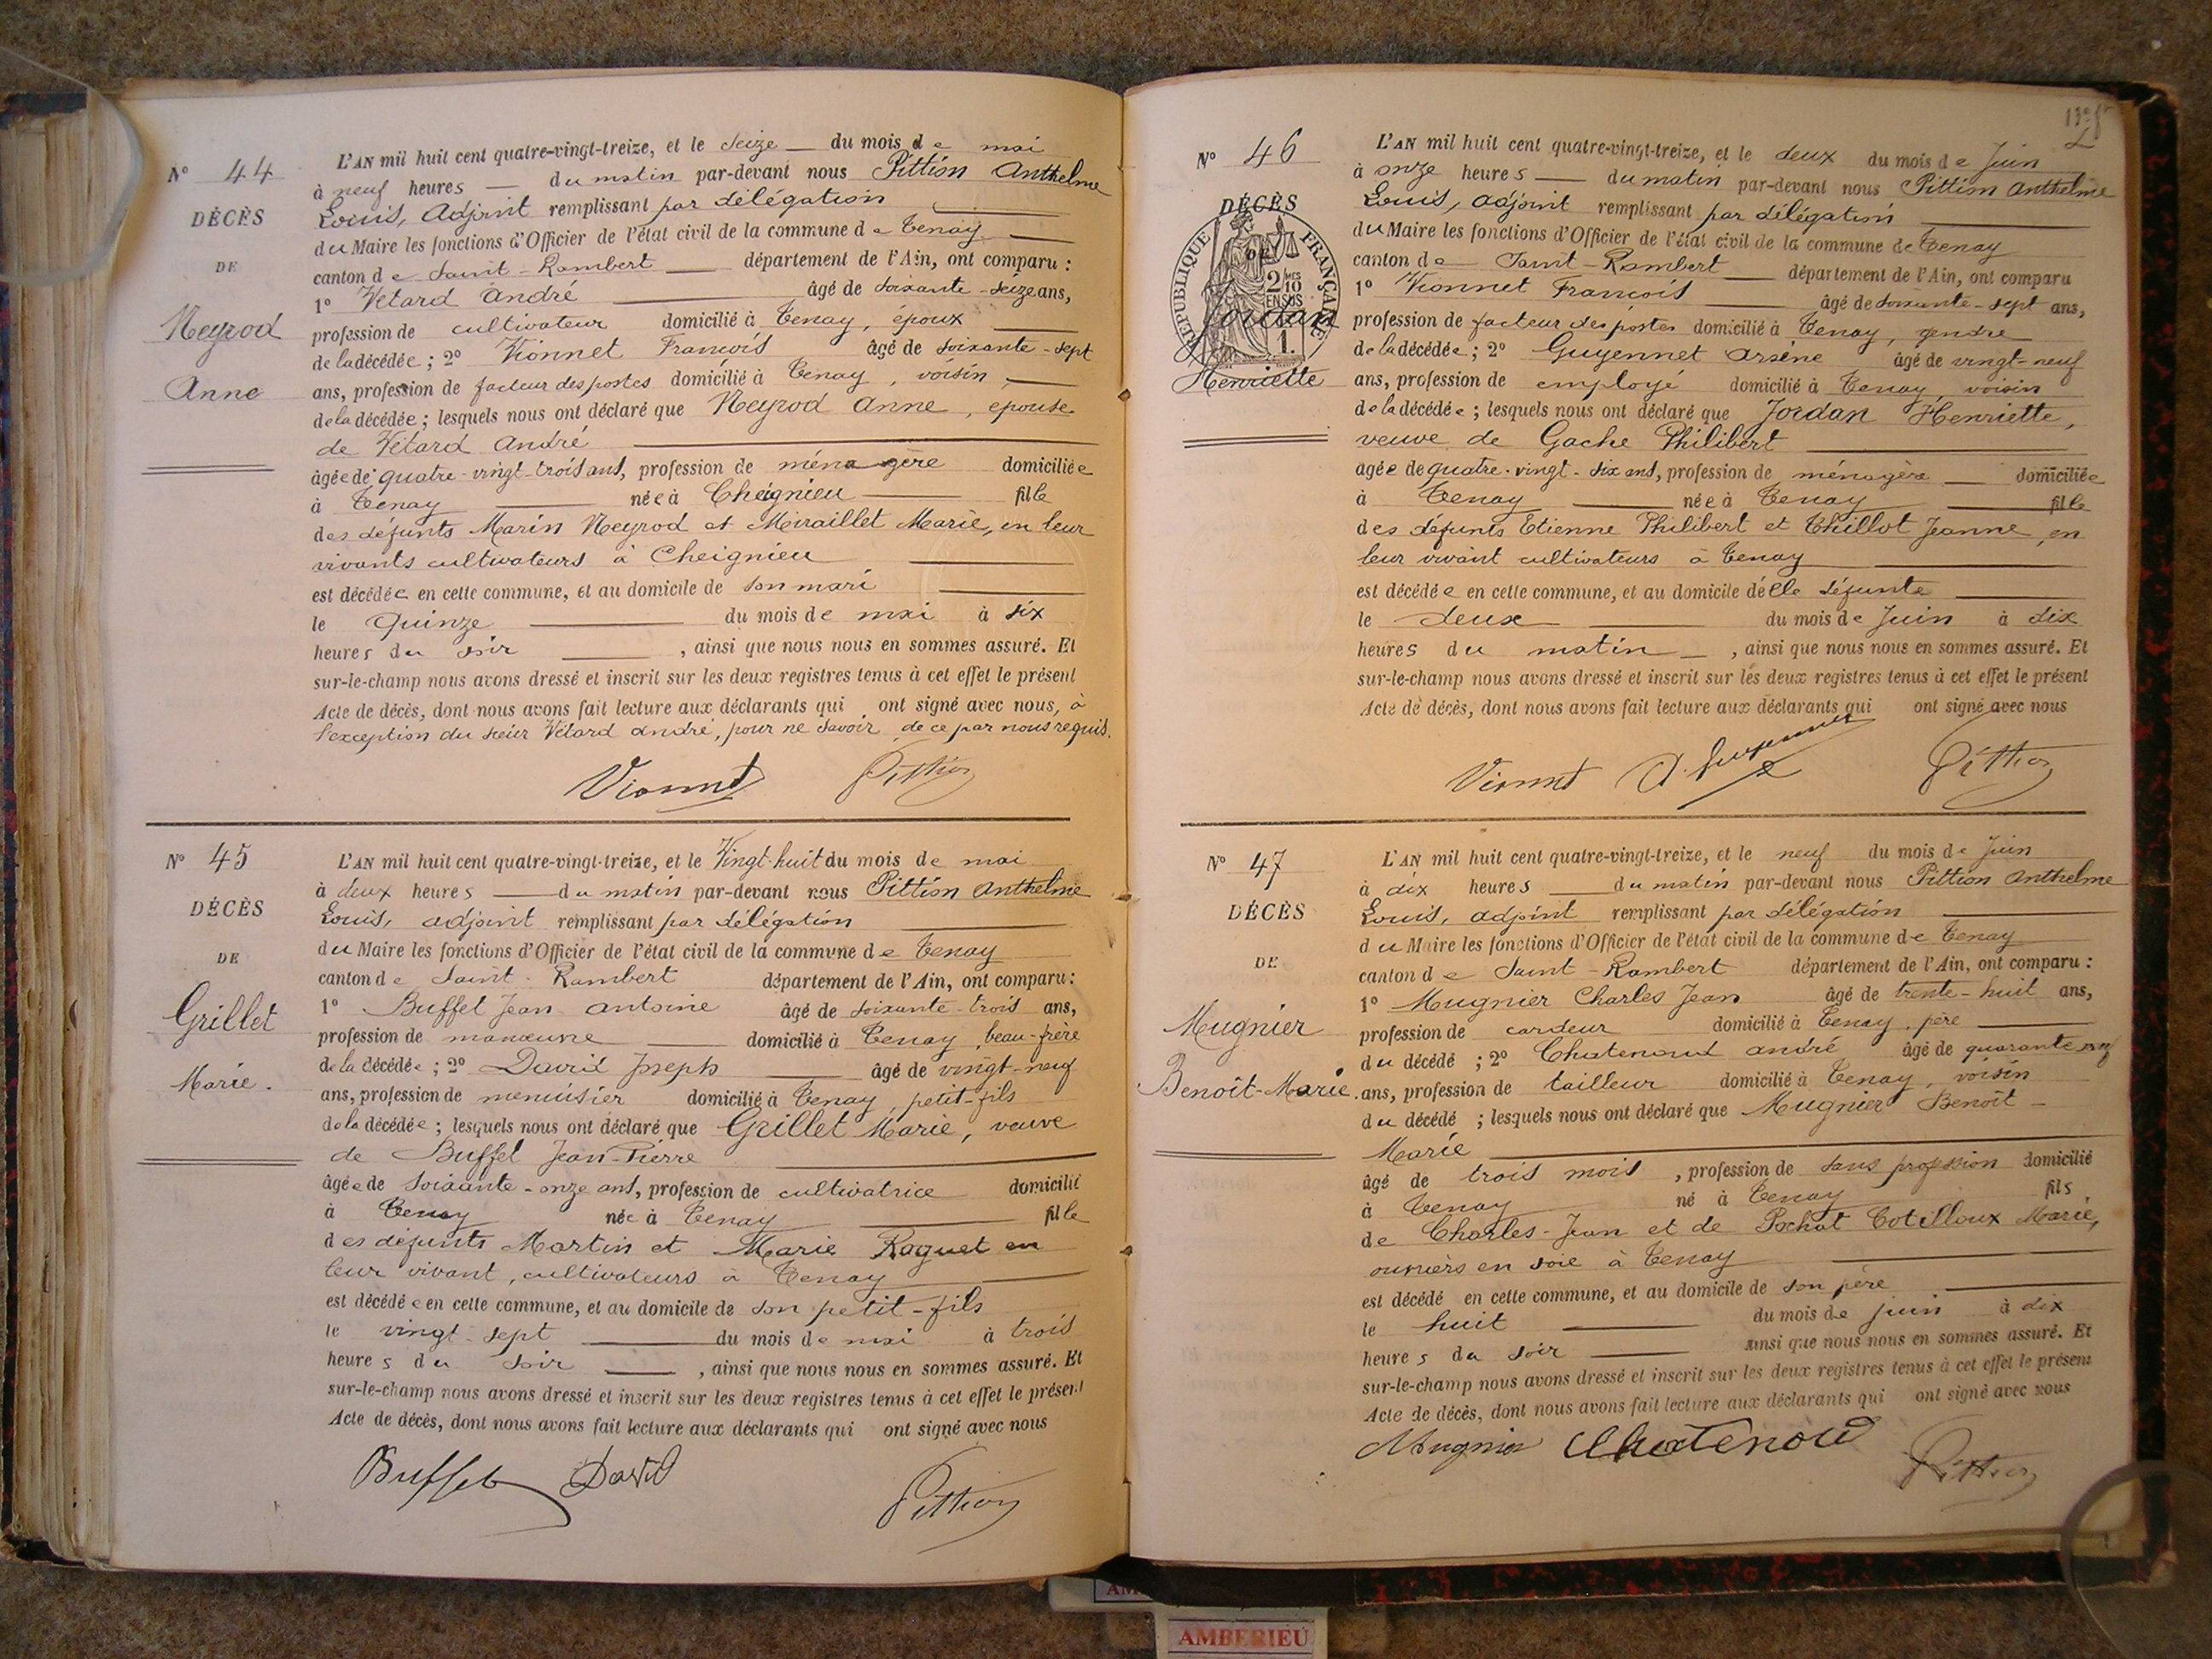 N° 44
DÉCÈS
DE
Neyrod
Anne
L'AN mil huit cent quatre-vingt-treize, et le seize du mois de mai
à neuf heures du matin par-devant nous Pittion Anthelme
Louis, Adjoint remplissant par délégation
du Maire les fonctions d'Officier de l'état civil de la commune de Tenay
canton de Saint-Rambert département de l'Ain, ont comparu :
1° Vétard André âgé de soixante-seize ans,
profession de cultivateur domicilié à Tenay, époux
de la décédée ; 2° Vionnet François âgé de soixante-sept
ans, profession de facteur des postes domicilié à Tenay, voisin
de la décédée ; lesquels nous ont déclaré que Neyrod Anne, épouse
de Vétard André
âgée de quatre-vingt-trois ans, profession de ménagère domiciliée
à Tenay née à Cheignieu fille
des défunts Marin Neyrod et Miraillet Marie, en leur
vivants cultivateurs à Cheignieu
est décédée en cette commune, et au domicile de son mari
le quinze du mois de mai à six
heures du soir , ainsi que nous nous en sommes assuré. Et
sur-le-champ nous avons dressé et inscrit sur les deux registres tenus à cet effet le présent
Acte de décès, dont nous avons fait lecture aux déclarants qui ont signé avec nous, à
l'exception du sieur Vétard André, pour ne savoir, de ce par nous requis.
Vionnet Pittion
N° 45
DÉCÈS
DE
Grillet
Marie.
L'AN mil huit cent quatre-vingt-treize, et le Vingt-huit du mois de mai
à deux heures du matin par-devant nous Pittion Anthelme
Louis, adjoint remplissant par délégation
du Maire les fonctions d'Officier de l'état civil de la commune de Tenay
canton de Saint-Rambert département de l'Ain, ont comparu :
1° Buffet Jean Antoine âgé de soixante-trois ans,
profession de manœuvre domicilié à Tenay, beau-frère
de la décédée ; 2° David Joseph âgé de vingt-neuf
ans, profession de menuisier domicilié à Tenay, petit-fils
de la décédée ; lesquels nous ont déclaré que Grillet Marie, veuve
de Buffet Jean-Pierre
âgée de soixante-onze ans, profession de cultivatrice domicilié
à Tenay née à Tenay fille
des défunts Martin et Marie Raguet en
leur vivant, cultivateurs à Tenay
est décédée en cette commune, et au domicile de son petit-fils
le vingt-sept du mois de mai à trois
heures du soir , ainsi que nous nous en sommes assuré. Et
sur-le-champ nous avons dressé et inscrit sur les deux registres tenus à cet effet le présent
Acte de décès, dont nous avons fait lecture aux déclarants qui ont signé avec nous
Buffet David
Pittion
N° 46
DÉCÈS
DE
RÉPUBLIQUE FRANÇAISE
2/10 MES
EN SUS
1.
Jordan
Henriette
L'AN mil huit cent quatre-vingt-treize, et le deux du mois de Juin
à onze heures du matin par-devant nous Pittion Anthelme
Louis, adjoint remplissant par délégation
du Maire les fonctions d'Officier de l'état civil de la commune de Tenay
canton de Saint-Rambert département de l'Ain, ont comparu
1° Vionnet François âgé de soixante-sept ans,
profession de facteur des postes domicilié à Tenay, gendre
de la décédée ; 2° Guyennet Arsène âgé de vingt-neuf
ans, profession de employé domicilié à Tenay voisin
de la décédée ; lesquels nous ont déclaré que Jordan Henriette,
veuve de Gache Philibert
âgée de quatre-vingt-six ans, profession de ménagère domiciliée
à Tenay née à Tenay fille
des défunts Etienne Philibert et Thillot Jeanne, en
leur vivant cultivateurs à Tenay
est décédée en cette commune, et au domicile délle défunte
le deux du mois de Juin à dix
heures du matin , ainsi que nous nous en sommes assuré. Et
sur-le-champ nous avons dressé et inscrit sur les deux registres tenus à cet effet le présent
Acte de décès, dont nous avons fait lecture aux déclarants qui ont signé avec nous
Vionnet A. Guyennet Pittion
N° 47
DÉCÈS
DE
Mugnier
Benoît-Marie.
L'AN mil huit cent quatre-vingt-treize, et le neuf du mois de Juin
à dix heures du matin par-devant nous Pittion Anthelme
Louis, adjoint remplissant par délégation
du Maire les fonctions d'Officier de l'état civil de la commune de Tenay
canton de Saint-Rambert département de l'Ain, ont comparu :
1° Mugnier Charles Jean âgé de trente-huit ans,
profession de cardeur domicilié à Tenay, père
du décédé ; 2° Chatenoud André âgé de quarante
ans, profession de tailleur domicilié à Tenay, voisin
du décédé ; lesquels nous ont déclaré que Mugnier Benoît-
Marie
âgé de trois mois, profession de sans profession domicilié
à Tenay né à Tenay fils
de Charles-Jean et de Pochat Cotilloux Marie,
ouvriers en soie à Tenay
est décédé en cette commune, et au domicile de son père
le huit du mois de juin à dix
heures du soir ainsi que nous nous en sommes assuré. Et
sur-le-champ nous avons dressé et inscrit sur les deux registres tenus à cet effet le présent
Acte de décès, dont nous avons fait lecture aux déclarants qui ont signé avec nous
Mugnier Chatenoud Pittion
AMBERIEU